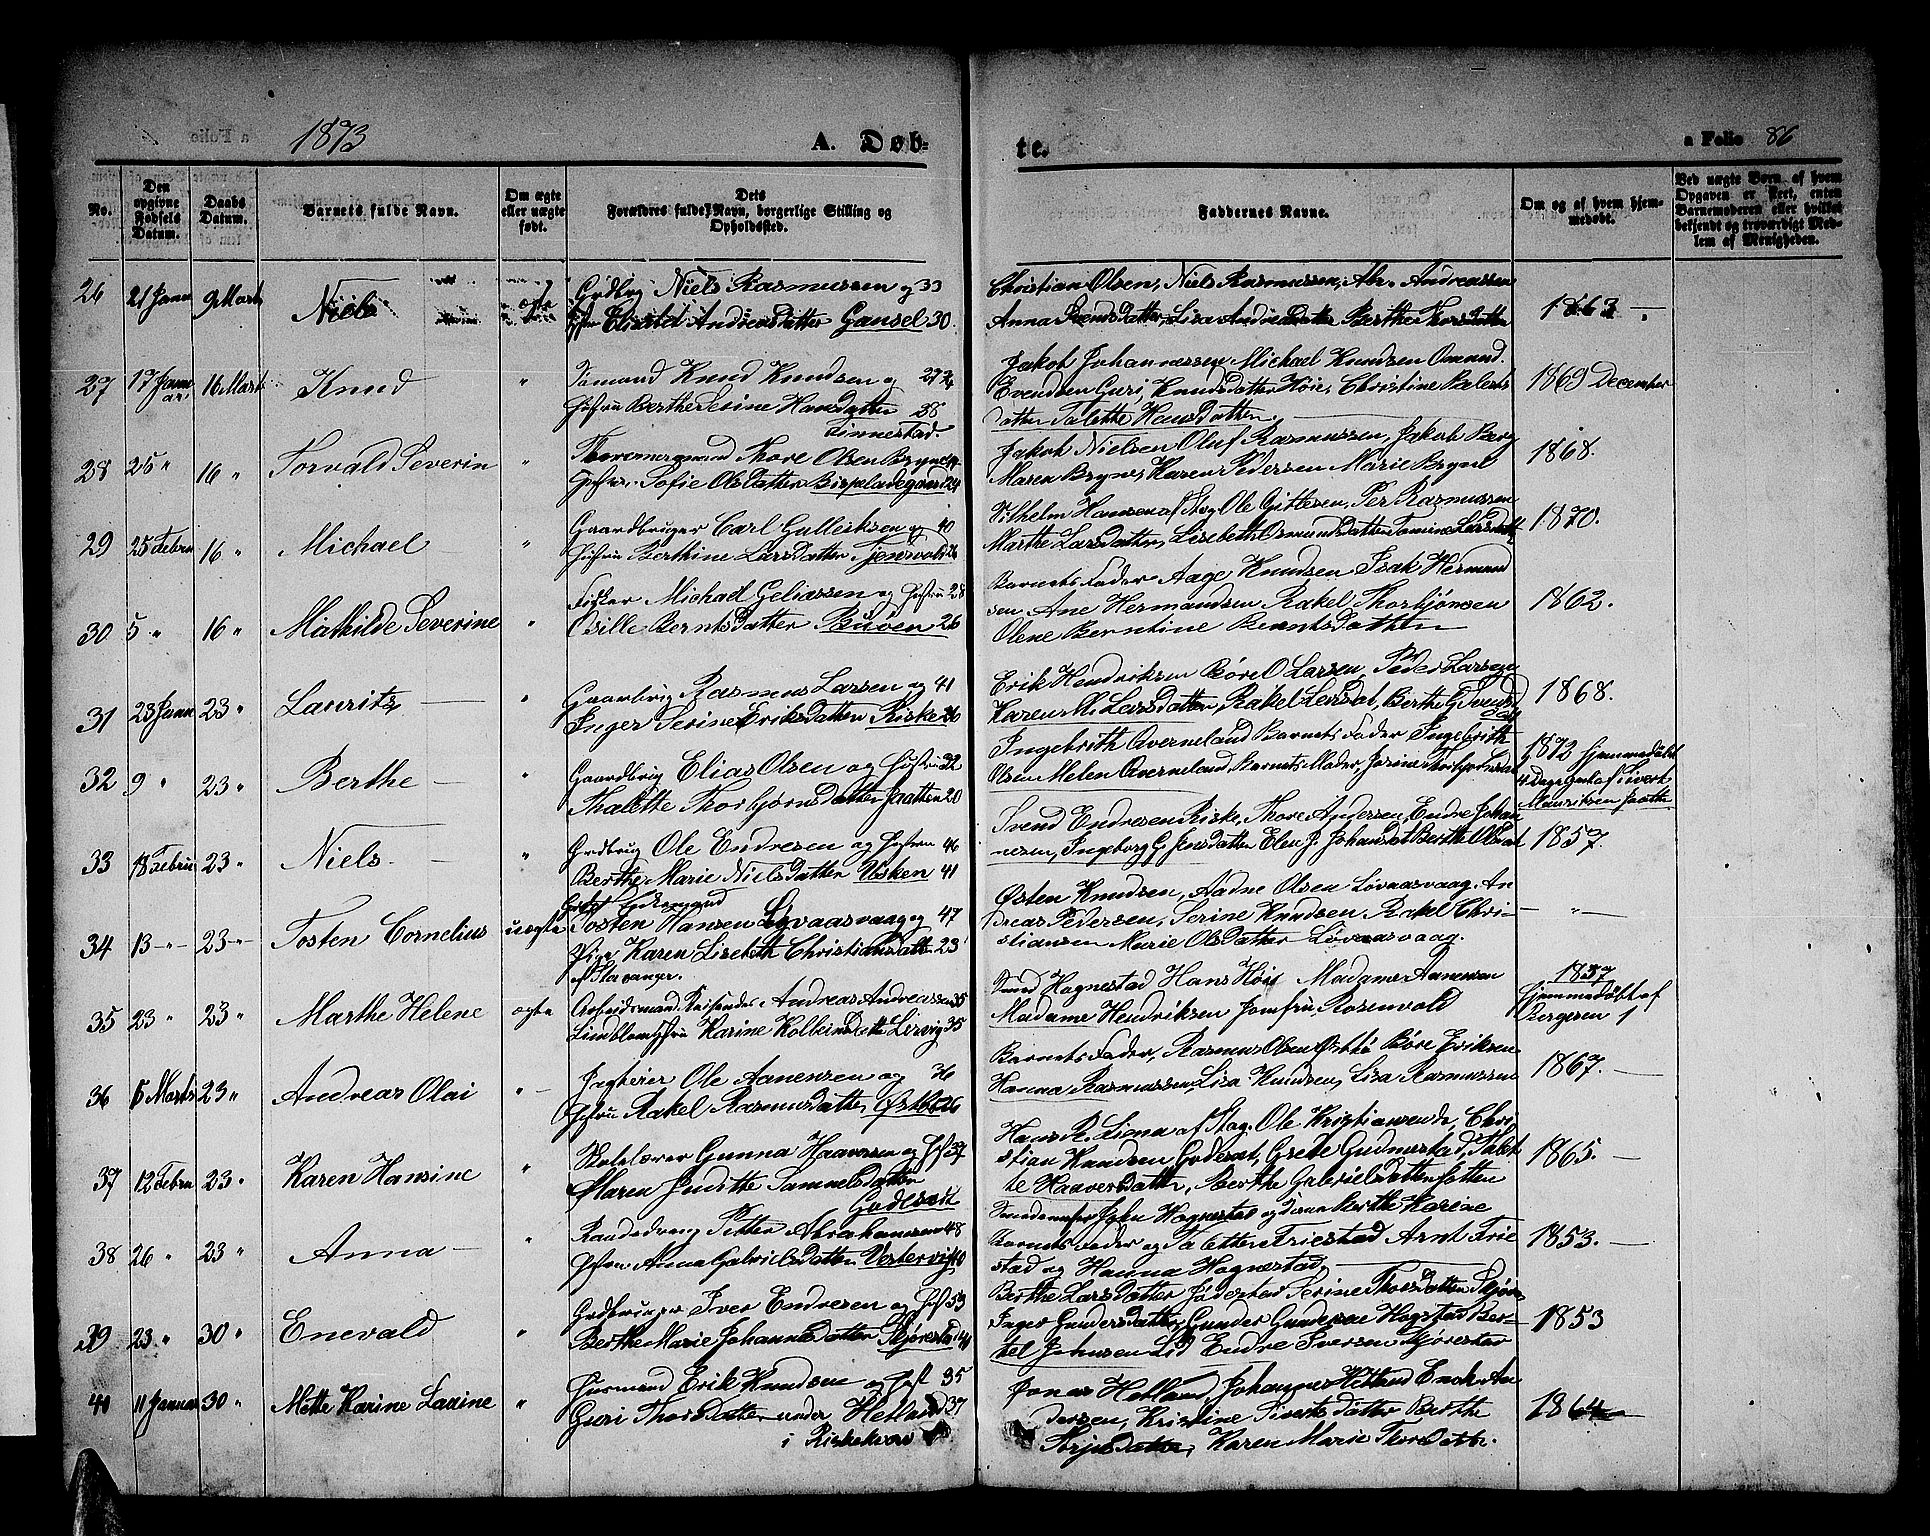 1873
A. Døb-
te.
a Folio 86
No.
Den opgivne Fødsels Datum.
Daabs Datum.
Barnets fulde Navn.
Om ægte eller uægte født.
Dets Forældres fulde Navn, borgerlige Stilling og Opholdssted.
Faddernes Navne.
Om og af hvem hjemmedøbt.
Ved uægte Børn, af hvem Opgaven er skeet, enten Barnemoderen eller hvilket bekjendt og troværdigt Medlem af Menigheden.
26 21 Janu 9 Marts Niels ægte
Niels Rasmussen og 33
Andreasdatter Gausel 30.
Christian Olsen, Niels Rasmussen, Abr. Andreassen
Anna Svendsdatter, Lisa Andreasdatter Berthe Thorsdatter
1863 —
27 17 Januar 16 Mart Knud "
Sømand Knud Knudsen og
Hustru Berthe Serine Hansdatter 38
Tinnestad.
Jakob Johannessen Michael Knudsen Omund
Evendsen Guri Knudsdatter Høie, Christine Palests
datter Talette Hansdatter.
1869 December
28 25 " 16 " Torvald Severin "
Thore Olsen Bryne
Hustru. Sofie Olsdatter Bispeladegaard 24
Jakob Nielsen Oluf Rasmussen, Jakob Berg
Maren Bryne, Karen Pedersen Marie Bryne
1868.
29 25 Febru 16 " Michael "
Gaardbruger Carl Gulleiksen og 40
Hustru Berthine Larsdatter Tjensvold 26
Vilhelm Hansen af Stav Ole Gittesen, Per Rasmussen
Marthe Larsdatter, Lisebeth Osmundsdatter Tomine Larsdatt
1870.
30 5 " 16 " Mathilde Severine "
Fisker Michael Geliassen og Hustru 28
Osille Berntsdatter Buøen 26
Barnets Fader Aage Knudsen Isak Hermand
sen Ane Hermandsen Rakel Thorbjønsen
Olene Berntine Berntsdatter
1862.
31 23 Janu 23 " Lauritz "
Gaardbrug Rasmus Larsen og 41
Inger Serine Eriksdatter Riske 36
Erik Hendriksen Børe O Larsen, Peder Larsen
Karen M. Larsdatter, Rakel Larsdat, Berthe G Svends
datt
1868.
32 9 " 23 " Berthe "
Gaardbrug Elias Olsen og Hustru 32
Thalette Thorbjørnsdatter Jaatten 20
Ingebrith Qverneland Barnets Fader Ingebrith
Olsen Helen Qverneland, Barnets Moder, Josine Thorbjønsdat
1872 Hjemmedøbt
4 Dage gml af Sivert
Henriksen Jaatte
33 18 Febru 23 " Niels. "
Grdbrug Ole Endresen og Hustru 46
Berthe Marie Nielsdatter Vosken 41
Svend Endresen Riske, Thore Andersen, Endre Johan
nesen, Ingeborg G. Jensdatter Elen J. Johansdat Berthe Olsdat
1857.
34 13 " 23 " Tosten Cornelius uægte
Tosten Hansen Løvaasvaag og 47
Pige Karen Lisebeth Christiansdatter 23
af Stavanger.
Østen Knudsen, Aadne Olsen Løvaasvaag. An
dreas Pedersen, Serine Knudsen Rakel Chri-
stiansen Marie Olsdatter Løvaasvaag.
— " —
35 23 " 23 " Marthe Helene ægte
Arbeidsmand Andreas Andreassen 35
Hustru Karine Kolbeinsdatter Lervig 35
Hognestad Hans Høie Madame Aanensen
Madame Hendriksen Jomfru Rosenvold
1837
Hjemmedøbt af
Bergesen
36 5 Marts 23 " Andreas Olai "
Jagteier Ole Aanensen og
Hustru Rakel Rasmusdatter Østbø 26
Barnets Fader, Rasmus Olsen Østbø Børe Eriksen
Hanna Rasmussen, Lisa Knudsen, Lisa Rasmussen
1867.
37 12 Febru 23 " Karen Hansine "
Skolelærer Gunna Haaversen og Hust 37
Maren Judithe Samuelsdatter
Godesæt
Hans R. Lima af Stav. Ole Kristiansen do, Chri-
stian Knudsen Godesæt, Grete Gudmestad, Talet
te Haaversdatter, Berthe Gabrielsdatter Jatten
1865.
38 26 " 23 " Anna "
Petter Abrahamsen 48
Hustru Anna Gabrielsdatter Vestervig 40
John Hognestad og Jane Berthe Karine
Barnets Fader og Friestad Arnt Frie
stad og Hanna Hognestad
1853.
39 23 " 30 " Enevald "
Grdbruger Iver Endresen og Hust 53
Berthe Marie Johannesdatter Skjørestad 41
Berthe Larsdatter Jødestad Serine Thorsdatter Skjøre
Inger Gundersdatter, Gunder Gundersen Hogstad Ber-
tel Johnsen Lid Endre Iversen Skjørestad
1853
40 11 Januar 30 " Mette Karine Laurine "
Husmand Erik Knudsen og Hust 35
Guri Thorsdatter under Hetland 37
i Riskekvern
Jonas Hetland, Johannes Hetland Enok An
dersen, Kristine Sivertsdatter Berthe
Terjesdatter, Karen Marie Thorsdatter.
1864